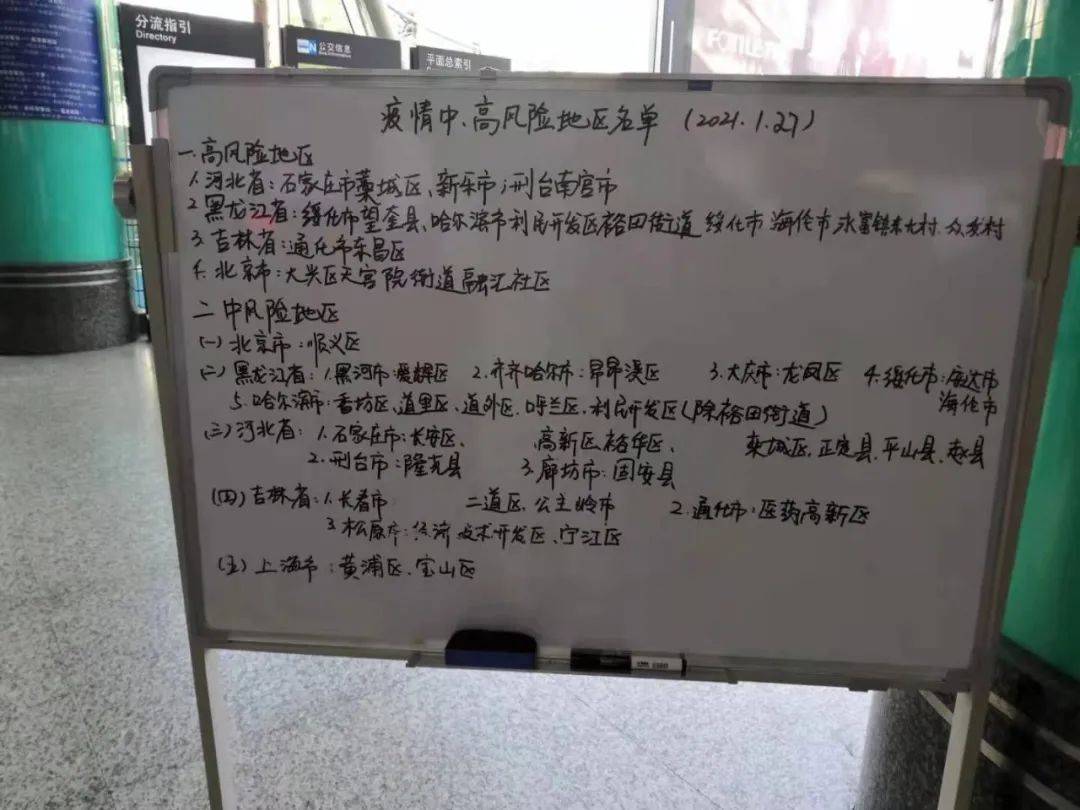 分流指引
Directory
公交信息
平面总索引
FOTILE
疫情中、高风险地区名单 (2021.1.27)
一.高风险地区
1.河北省:石家庄市藁城区、新乐市;刑台南宫市
2.黑龙江省:绥化市望奎县、哈尔滨市利民开发区裕田街道 绥化市 海伦市 永富镇 村、众发村
3.吉林省:通化市东昌区
4.北京市:大兴区天宫院街道融汇社区
二 中风险地区
(一)北京市:顺义区
(二)黑龙江省:1.黑河市:爱辉区 2.齐齐哈尔市:昂昂溪区 3.大庆市:龙凤区 4.绥化市:安达市
海伦市
5.哈尔滨市:香坊区、道里区、道外区、呼兰区、利民开发区(除裕田街道)
(三)河北省: 1.石家庄市:长安区、 高新区、裕华区、 栾城区、正定县、平山县、赵县
2.刑台市:隆尧县 3.廊坊市:固安县
(四)吉林省:1.长春市 二道区、公主岭市 2.通化市:医药高新区
3.松原市:经济技术开发区、宁江区
(五)上海市:黄浦区、宝山区